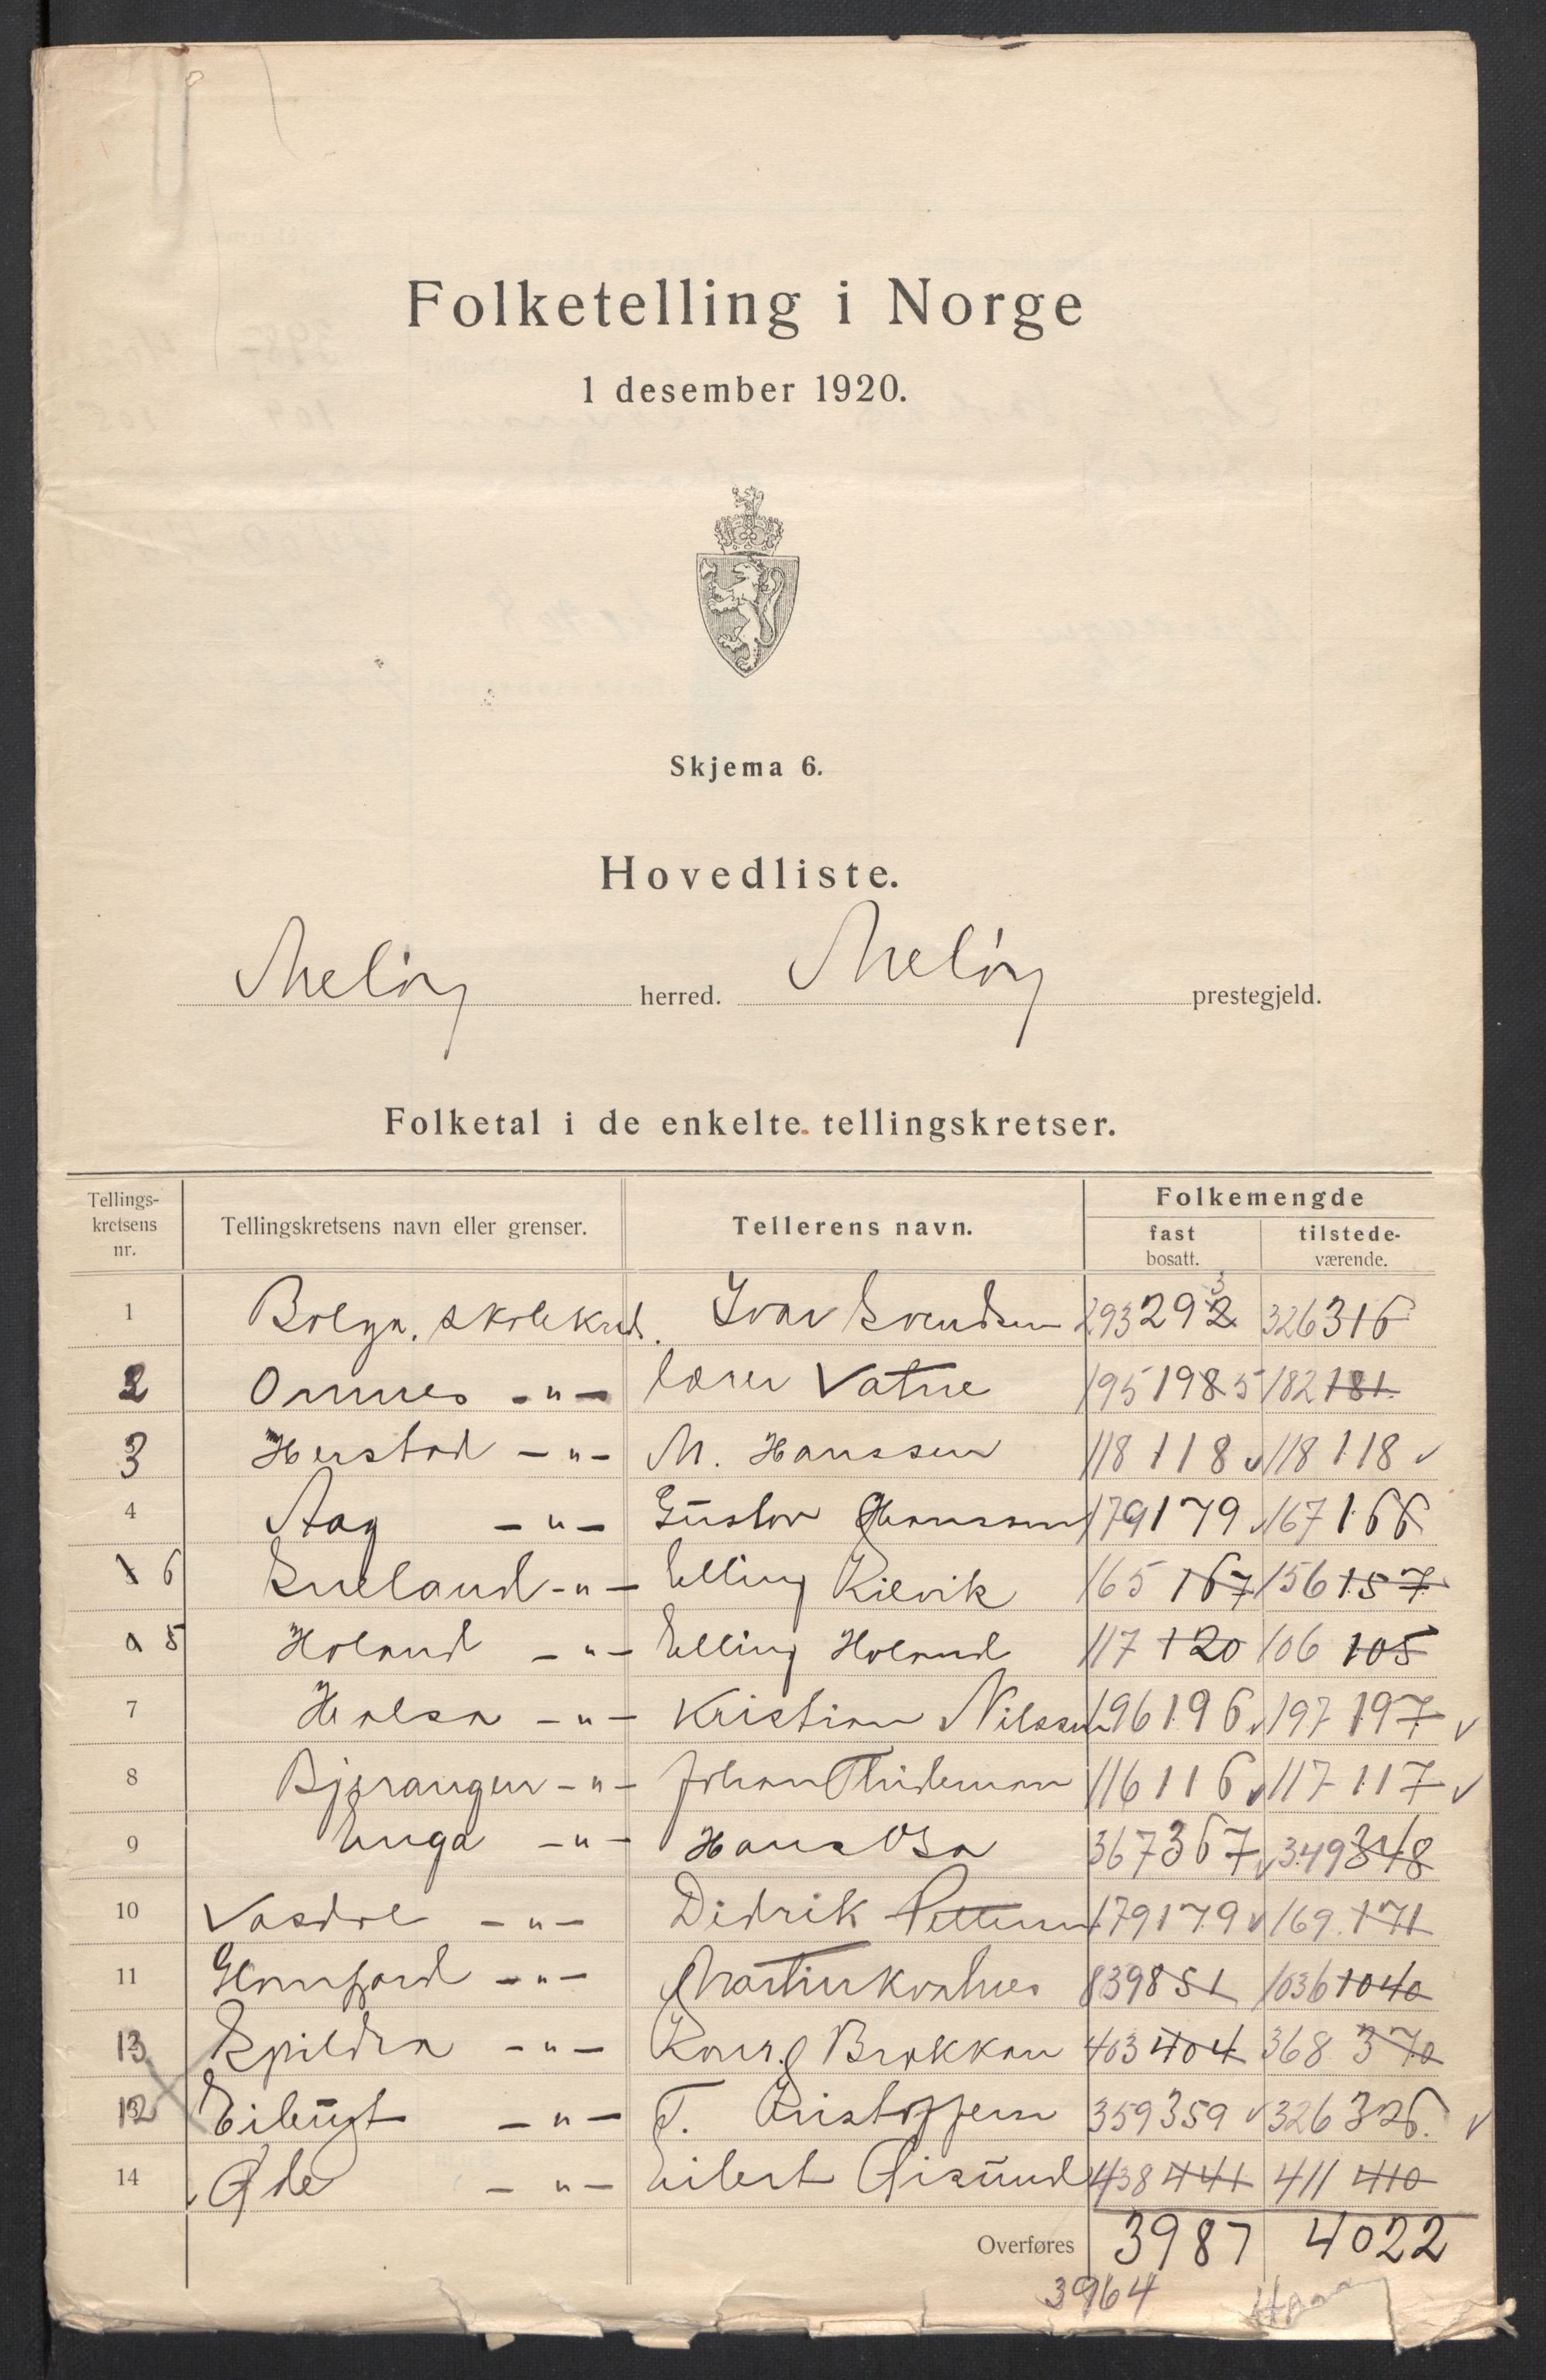 Folketelling i Norge
1 desember 1920.
Skjema 6.
Hovedliste.
Meløy herred. Meløy prestegjeld.
Folketal i de enkelte tellingskretser.
Tellings-kretsens nr. Tellingskretsens navn eller grenser. Tellerens navn. Folkemengde
fast bosatt. tilstede-værende.
1 Bolga, skolekreds. Ivar Svendsen 293 292 3 326 316
2 Ornnes -"- Lærer Vatne 195 198 5 182 181
3 Herstad -"- M. Hanssen 118 118 ✓ 118 118 ✓
4 Aag -"- Gustav Hanssen 179 179 ✓ 167 166
6 -"- Elling Kilvik 165 167 156 157
5 Holand -"- Elling Holand 117 120 106 105
7 Halsa -"- Kristian Nilssen 196 196 ✓ 197 197 ✓
8 Bjerangen -"- Johan Thideman 116 116 ✓ 117 117 ✓
9 Enga -"- Hans Osa 367 367 ✓ 349 348
10 Vasdal -"- Didrik Pettersen 179 179 ✓ 169 171
11 Glomfjord -"- Martin 839 851 1036 1040
13 Spildra -"- Brækkan 403 404 368 370
12 -"- T. Kristoffersen 359 359 ✓ 326 326 ✓
14 Øde -"- Eilert Gisund 438 441 411 410
Overføres 3987 4022
3964